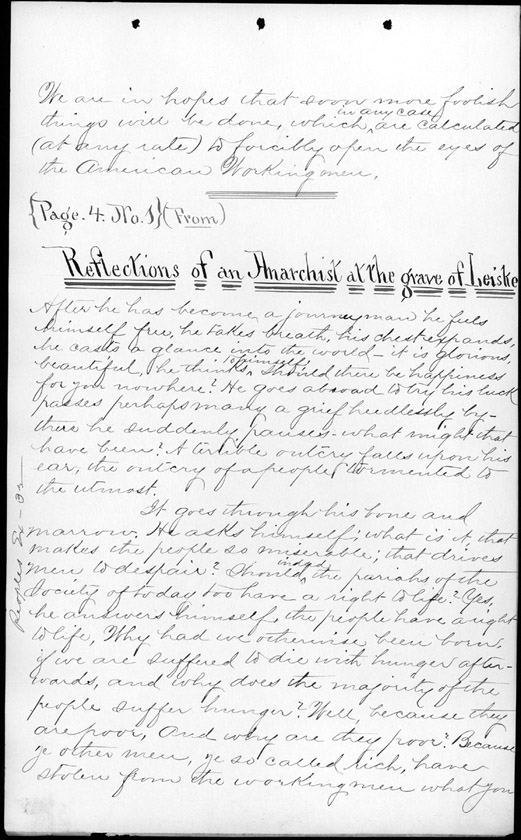 We are in hopes that soon more foolish
things will be done, which, in any case, are calculated
(at any rate) to forcibly open the eyes of
the American Workingmen.
{Page. 4. No. 1} (From)
Reflections of an Anarchist at the grave of Leiske
After he has become a journeyman he feels
himself free, he takes breath, his chest expands,
he casts a glance into the world – it is glorious,
beautiful, he thinks to himself, should there be happiness
for you nowhere? He goes abroad to try his luck
passes perhaps many a grief heedlessly by –
there he suddenly pauses – what might that
have been? A terrible outcry falls upon his
ear, the outcry of a people tormented to
the utmost.
It goes through his bone and
marrow. He asks himself; what is it, that
makes the people so miserable; that drives
men to despair? Should the pariahs of the
Society of today too have a right to life? Yes,
he answers himself, the people have a right
to life, Why had we otherwise been born,
if we are suffered to die with hunger after-
wards, and why does the majority of the
people suffer hunger? Well, because they
are poor, And why are they poor? Because
ye other men, ye so called rich, have
stolen from the workingmen what you
Peoples Ex – 32